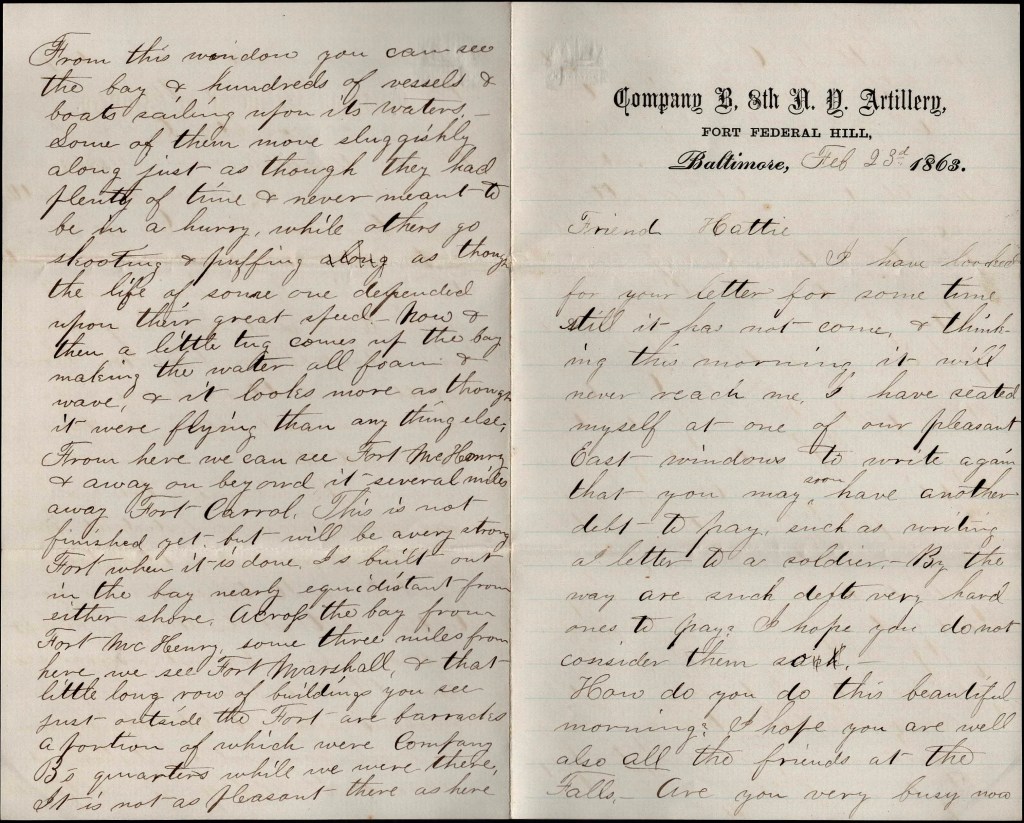 Company B, 8th N. Y. Artillery,
FORT FEDERAL HILL,
Baltimore, Feb 23d 1863.
Friend Hattie
I have looked
for your letter for some time
still it has not come, & think-
ing this morning it will
never reach me, I have seated
myself at one of our pleasant
East windows to write again
that you may soon have another
debt to pay, such as writing
a letter to a soldier,- By the
way are such debts very hard
ones to pay? I hope you do not
consider them so.-
How do you do this beautiful
morning? I hope you are well
also all the friends at the
Falls,- Are you very busy now
From this window you can see
the bay & hundreds of vessels &
boats sailing upon its waters,-
Some of them move sluggishly
along just as though they had
plenty of time & never meant to
be in a hurry, while others go
shooting & puffing along as though
the life of some one depended
upon their great speed- Now &
then a little tug comes up the bay
making the water all foam &
wave, & it looks more as though
it were flying than any thing else,
From here we can see Fort McHenry
& away on beyond it several miles
away Fort Carrol, This is not
finished yet, but will be a very strong
Fort when it is done, Is built out
in the bay nearly equidistant from
either shore, Across the bay from
Fort McHenry, some three miles from
here, we see Fort Marshall, & that
little long row of buildings you see
just outside the Fort are barracks
a portion of which were Company
B's quarters while we were there,
It is not as pleasant there as here